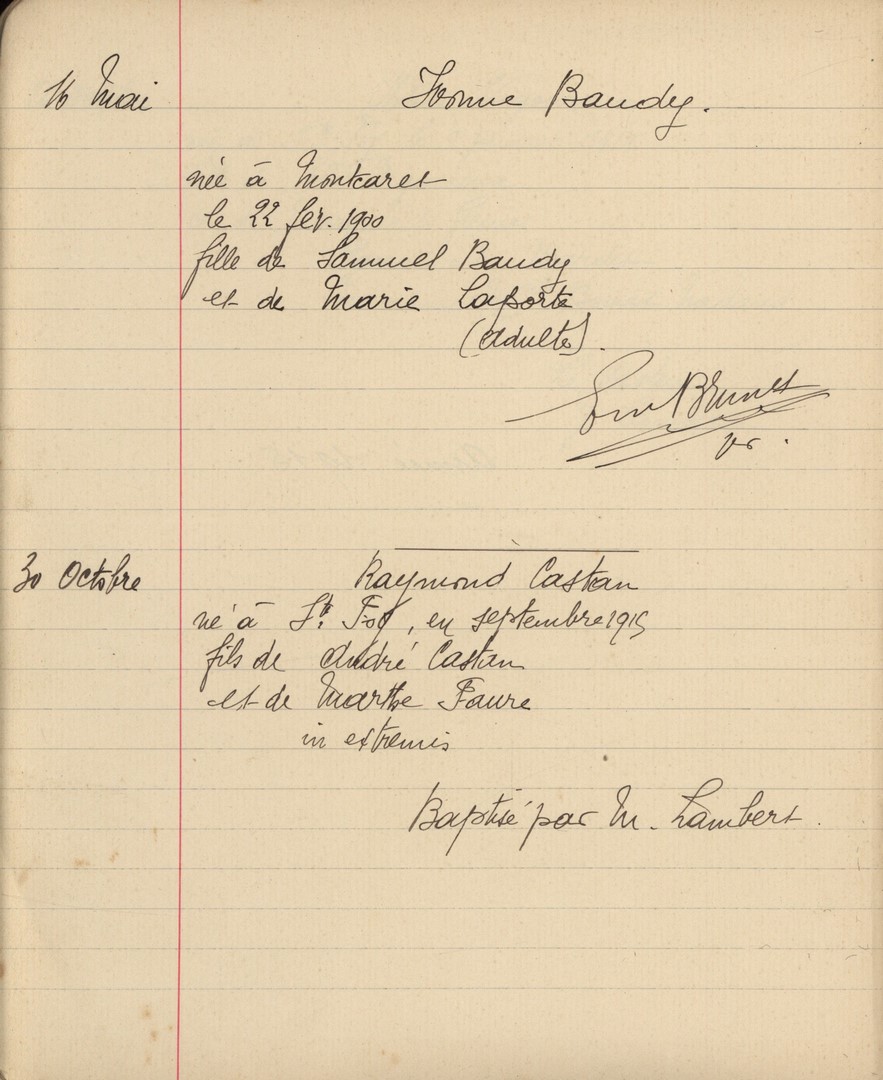 16 Mai Yvonne Baudy.
née à Montcaret
le 22 fév. 1900
fille de Samuel Baudy
et de Marie Laporte
(adulte).
Em Brunet
pr.
30 Octobre Raymond Castan
né à St. Foy, en septembre 1915
fils de André Castan
et de Marthe Faure
in extremis
Baptisé par M. Lambert.